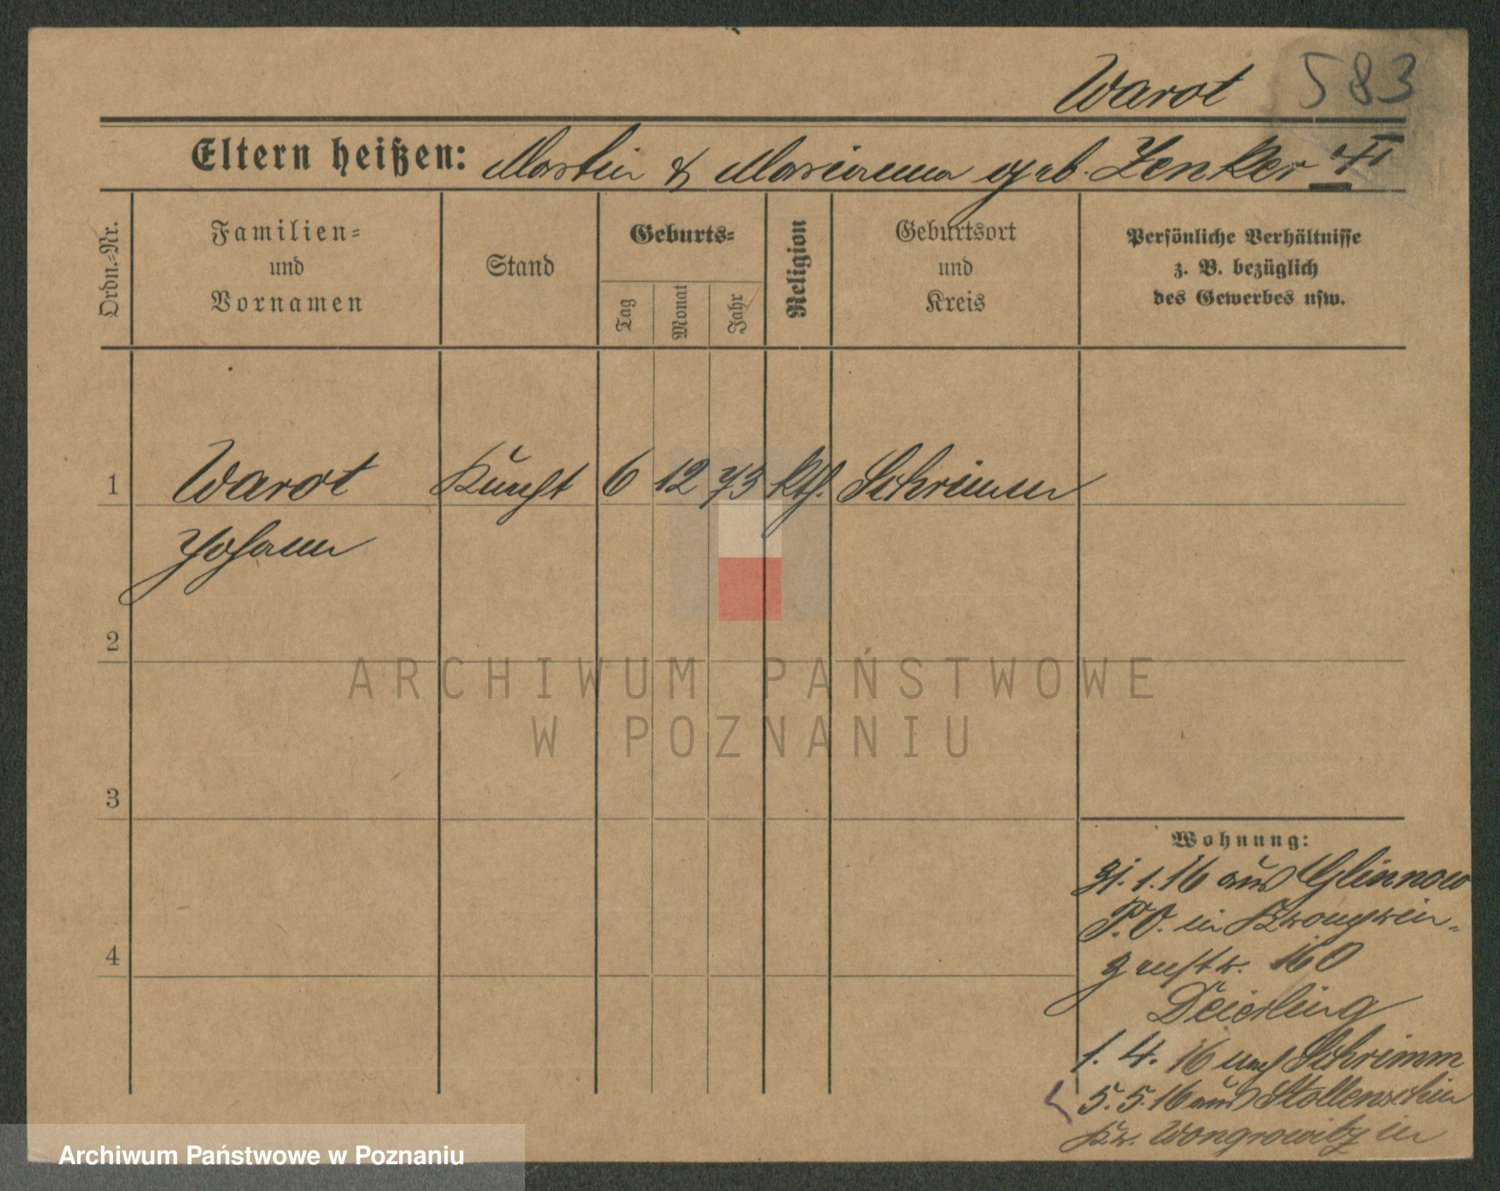 Warot 583
Eltern heißen: Martin & Marianna geb. Zenker
Ordn.-Nr.
Familien-
und
Vornamen
Stand
Geburts-
Tag
Monat
Jahr
Religion
Geburtsort
und
Kreis
Persönliche Verhältnisse
z. B. bezüglich
des Gewerbes usw.
1 Warot 6 12 73 kth. Schrimm
Johann
2
3
4
Wohnung:
31.1.16 aus Glinnow
P.O. in Kronprin-
zenstr. 160
1. 4. 16 nach Schrimm
5. 5. 16 aus
Kr. Wongrowitz in
ARCHIWUM PAŃSTWOWE
W POZNANIU
Archiwum Państwowe w Poznaniu